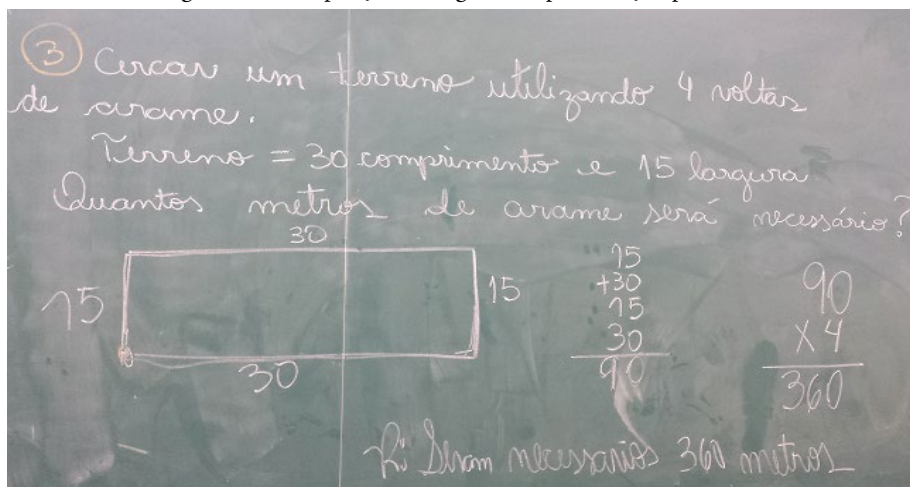 3 Cercar um terreno utilizando 4 voltas
de arame.
Terreno = 30 comprimento e 15 largura
Quantos metros de arame será necessário?
30
15
15
30
15
+30
15
30
90
90
X 4
360
R: Seram necessarios 360 metros